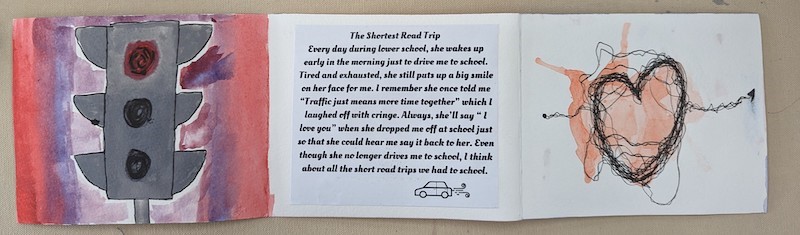 The Shortest Road Trip
Every day during lower school, she wakes up
early in the morning just to drive me to school.
Tired and exhausted, she still puts up a big smile
on her face for me. I remember she once told me
"Traffic just means more time together" which I
laughed off with cringe. Always, she'll say " I
love you" when she dropped me off at school just
so that she could hear me say it back to her. Even
though she no longer drives me to school, I think
about all the short road trips we had to school.